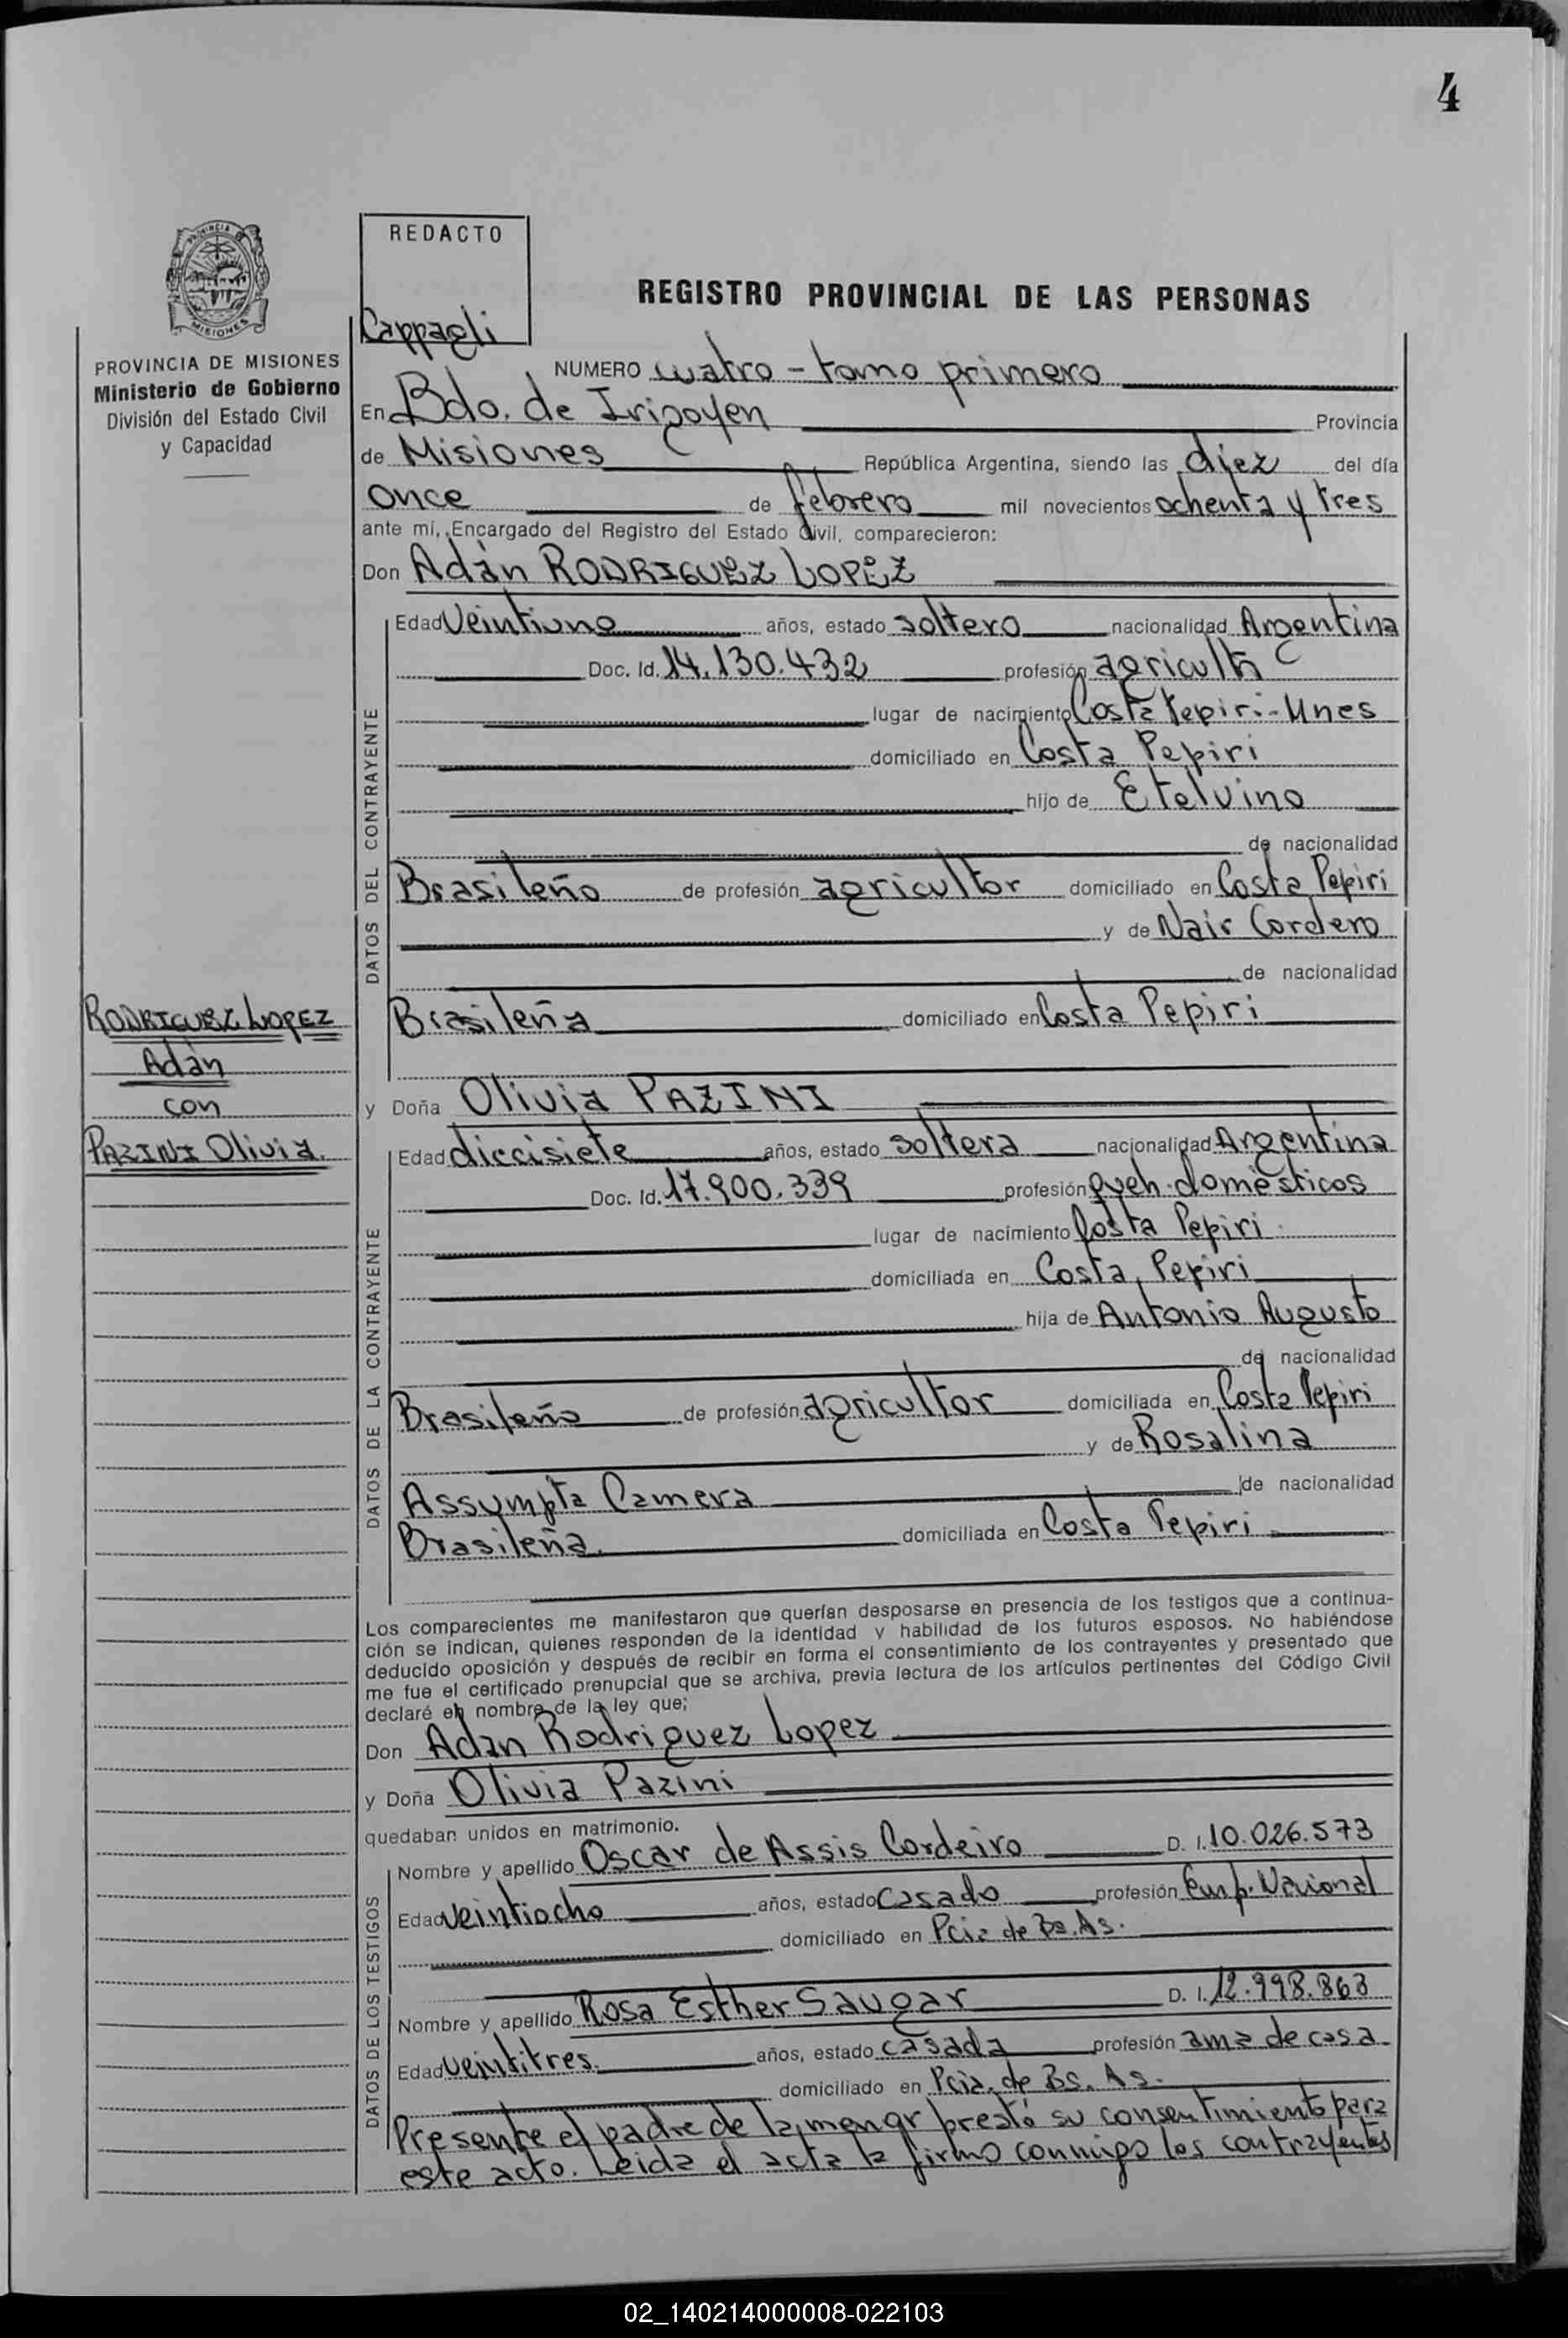 4
REDACTO
Cappagli
PROVINCIA DE MISIONES
Ministerio de Gobierno
División del Estado Civil
y Capacidad
REGISTRO PROVINCIAL DE LAS PERSONAS
NUMERO cuatro - tomo primero
En Bdo. de Irigoyen Provincia
de Misiones República Argentina, siendo las diez del día
once de febrero mil novecientos ochenta y tres
ante mí, Encargado del Registro del Estado Civil, comparecieron:
Don Adàn RODRIGUEZ LOPEZ
DATOS DEL CONTRAYENTE
Edad Veintiuno años, estado soltero nacionalidad Argentina
Doc. Id. 14.130.432 profesión
lugar de nacimiento Costa Pepiri-Mnes
domiciliado en Costa Pepiri
hijo de Etelvino
de nacionalidad
Brasileño de profesión agricultor domiciliado en Costa Pepiri
y de Nair Cordero
de nacionalidad
Brasileña domiciliado en Costa Pepiri
RODRIGUEZ LOPEZ
Adàn
con
PAZINI Olivia.
y Doña Olivia PAZINI
DATOS DE LA CONTRAYENTE
Edad diecisiete años, estado soltera nacionalidad Argentina
Doc. Id. 17.900.339 profesión queh. domèsticos
lugar de nacimiento Costa Pepiri
domiciliada en Costa Pepiri
hija de Antonio Augusto
de nacionalidad
Brasileño de profesión agricultor domiciliada en Costa Pepiri
y de Rosalina
Assumpta Camera de nacionalidad
Brasileña. domiciliada en Costa Pepiri
Los comparecientes me manifestaron que querían desposarse en presencia de los testigos que a continua-
ción se indican, quienes responden de la identidad y habilidad de los futuros esposos. No habiéndose
deducido oposición y después de recibir en forma el consentimiento de los contrayentes y presentado que
me fue el certificado prenupcial que se archiva, previa lectura de los artículos pertinentes del Código Civil
declaré en nombre de la ley que;
Don Adan Rodriguez Lopez
y Doña Olivia Pazini
quedaban unidos en matrimonio.
DATOS DE LOS TESTIGOS
Nombre y apellido Oscar de Assis Cordeiro D. I. 10.026.573
Edad veintiocho años, estado casado profesión Emp. Nacional
domiciliado en Pcia de Bs. As.
Nombre y apellido Rosa Esther Saugar D. I. 12.998.863
Edad veintitres. años, estado casada profesión ama de casa
domiciliado en Pcia. de Bs. As.
Presente el padre de la menor prestó su consentimiento para
este acto. Leida el acta la firmo conmigo los contrayentes
02_140214000008-022103